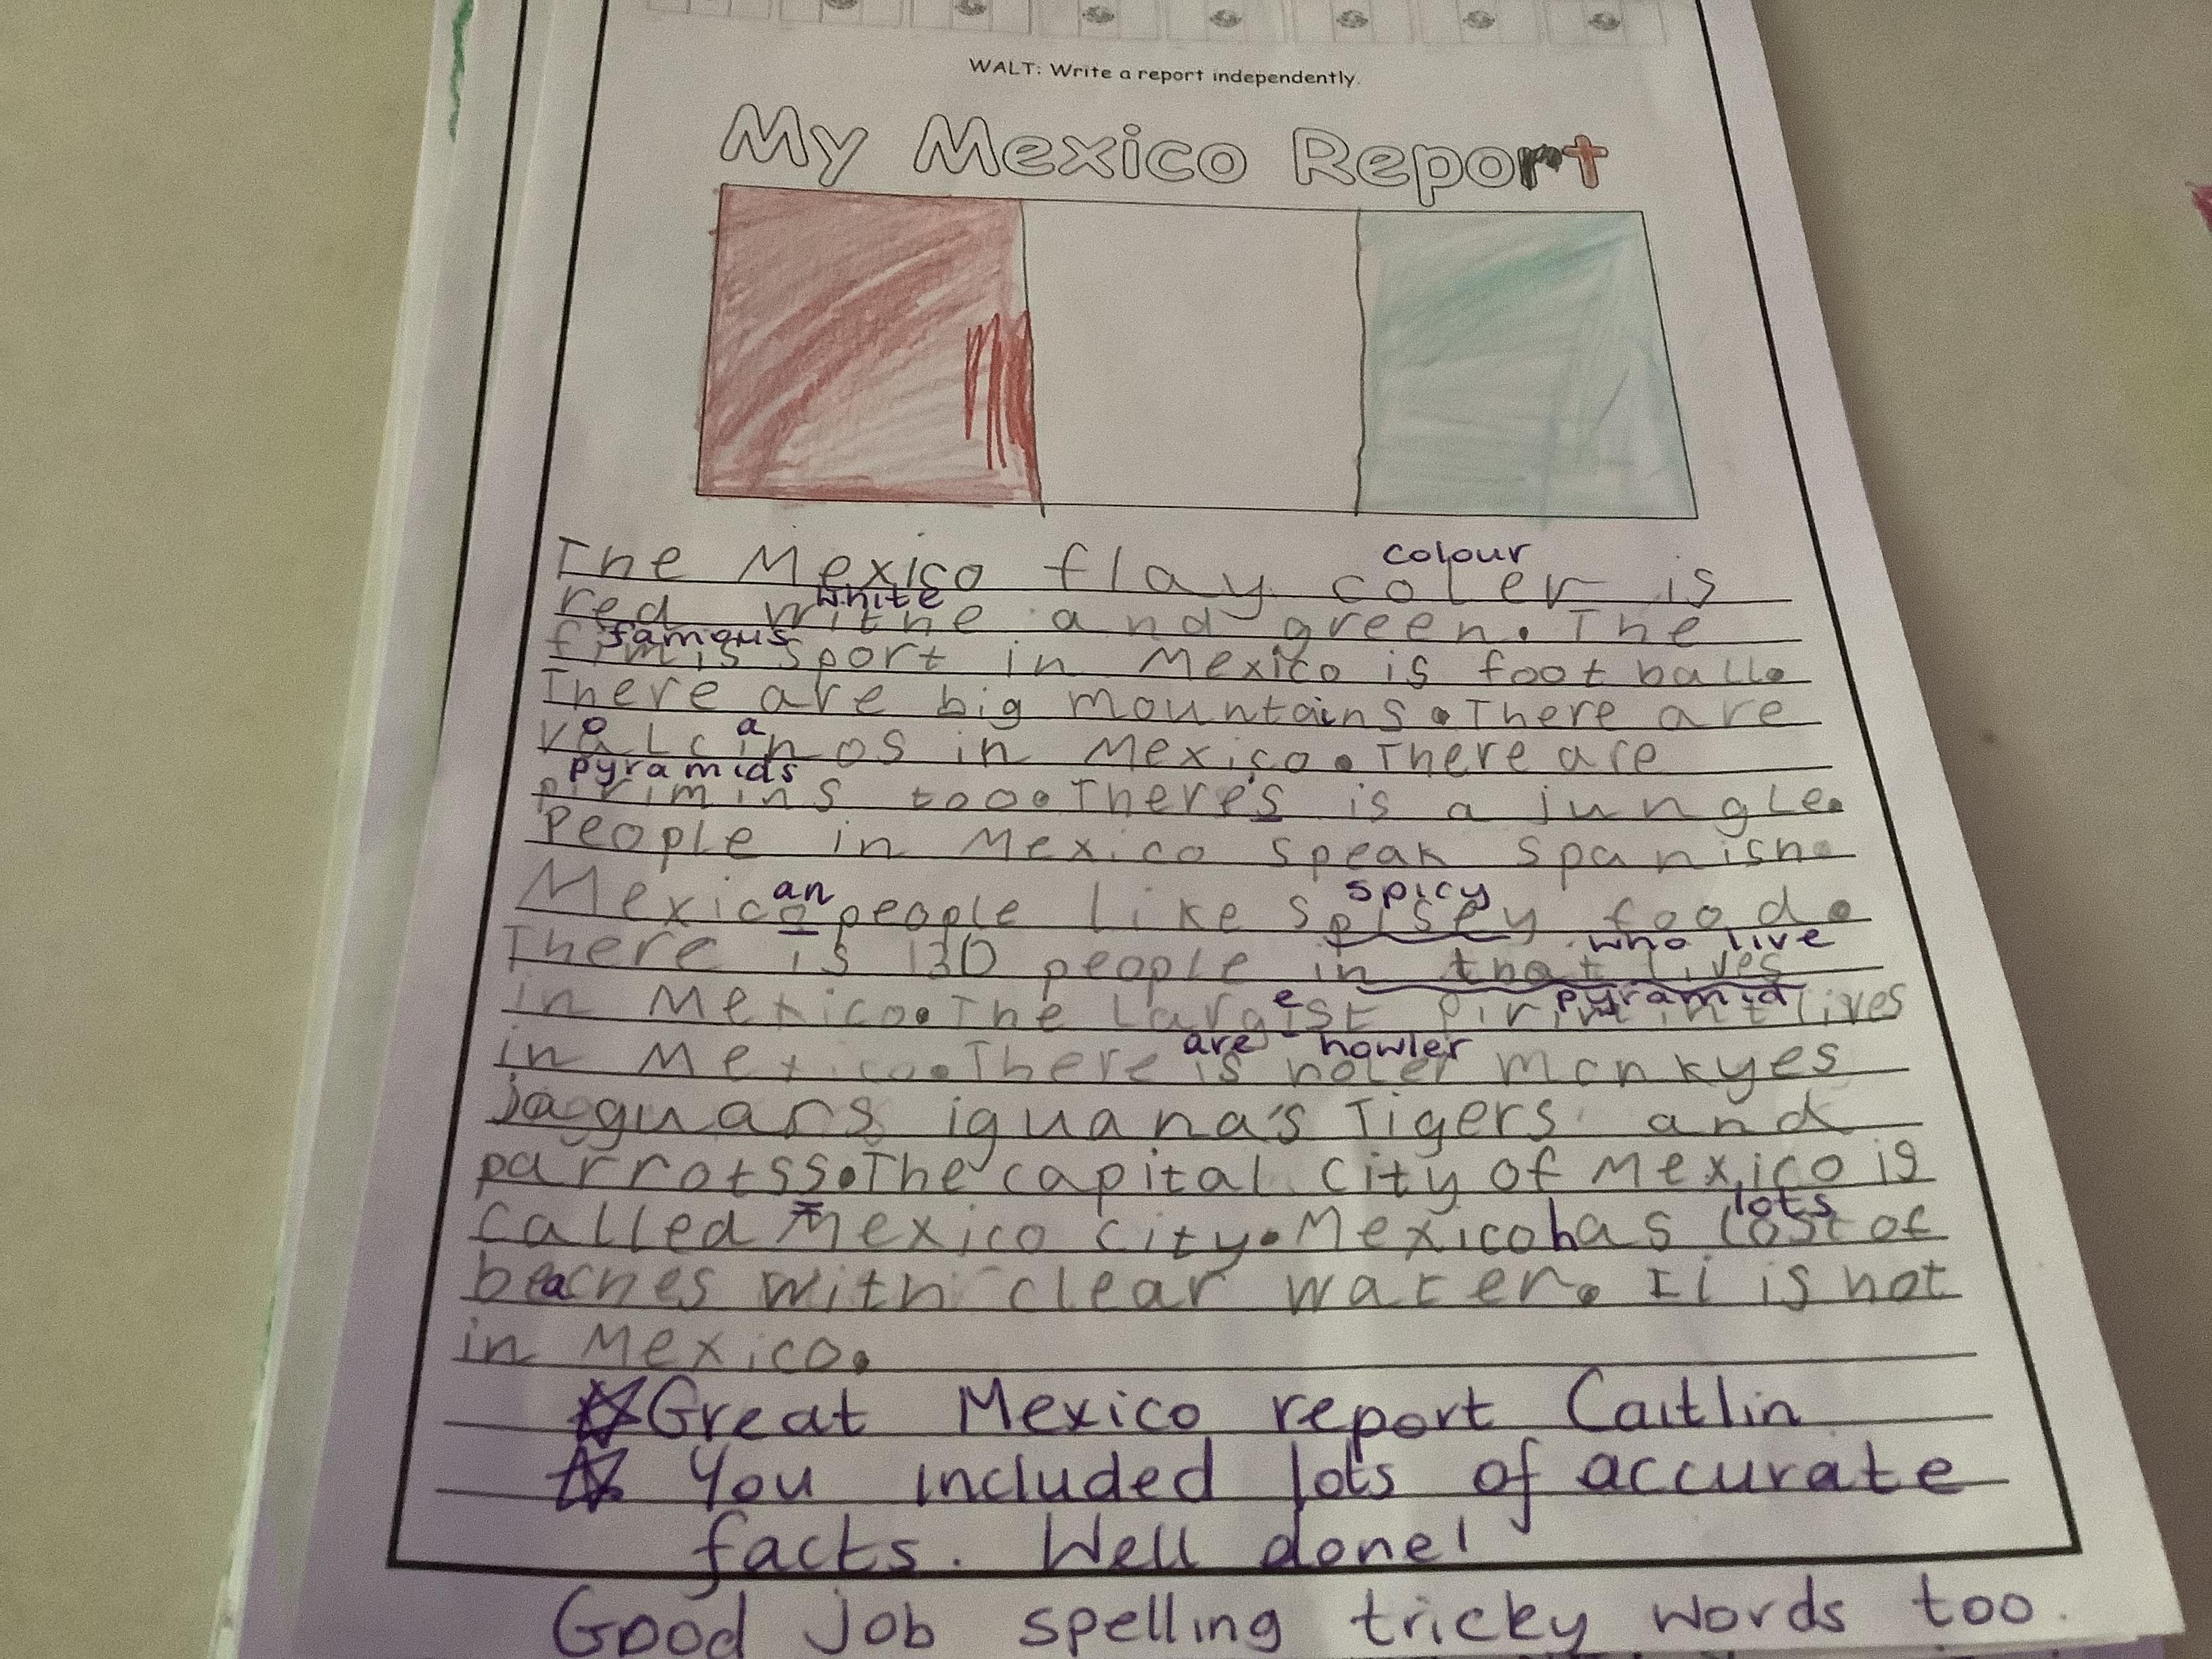 WALT: Write a report independently.
My Mexico Report
colour
The Mexico flay coler is
white
red withe and green. The
famous
fimis sport in Mexico is foot ball.
There are big mountains. There are
o a
valcinos in Mexico. There are
pyramids
pirimins too. There's is a jungle.
People in Mexico speak spanish.
an spicy
Mexico people like spisey food.
who live
There is 130 people in that lives
e pyramid
in Mexico. The largist lives
are howler
in Mexico. There is holer monkyes
jaguars iguana's Tigers and
parrotss. The capital city of Mexico is
lots
called Mexico city. Mexico has lost of
beaches with clear water. It is hot
in Mexico.
Great Mexico report Caitlin
You included lots of accurate
facts. Well done!
Good job spelling tricky words too.